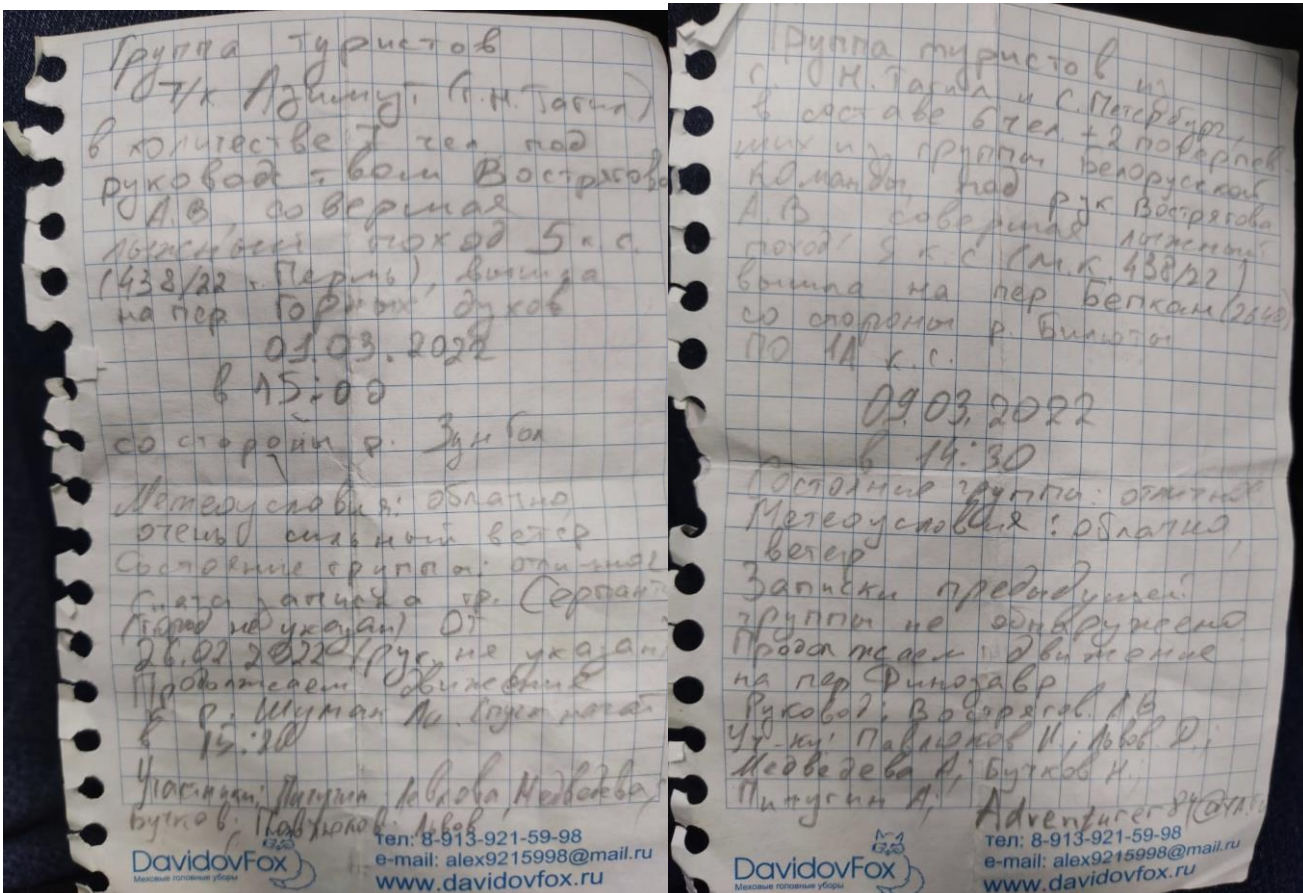 Группа туристов
т/к Азимут (г.Н.Тагил)
в количестве 7 чел под
руководством Вострягова
А.В, совершая
лыжный поход 5 к.с.
(438/22 г. Пермь), вышла
на пер. Горных духов
01.03.2022
в 15:00
со стороны р. Зун Гол
Метеоусловия: облачно,
очень сильный ветер
Состояние группы: отличное
Снята записка гр. Серпант
(город не указан) от
26.02.2022 (рук. не указан)
Продолжаем движение
к р. Шумак
в 15:20
Участники: Пичугин Медведева
Бучков, Павлюков, Львов
DavidovFox
Меховые головные уборы
тел: 8-913-921-59-98
e-mail: alex9215998@mail.ru
www.davidovfox.ru
Группа туристов из
г. Н.Тагил и С.Петербург,
в составе 6 чел + 2 
ших из группы Белорусской
команды под рук Вострягова
А.В совершая лыжный
поход 5 к.с (м.к. 438/22)
вышла на пер
со стороны р. Билюты
по 1А к.с.
09.03.2022
в 14:30
Состояние группы: отличное
Метеоусловия: облачно,
ветер
Записки предыдущей
группы не обнаружено
Продолжаем движение
на пер Динозавр
Руковод: Вострягов АВ
Уч-ки: Павлюков И.; Львов Д.;
Медведева А; Бучков Н.;
Пичугин А;
DavidovFox
Меховые головные уборы
тел: 8-913-921-59-98
e-mail: alex9215998@mail.ru
www.davidovfox.ru